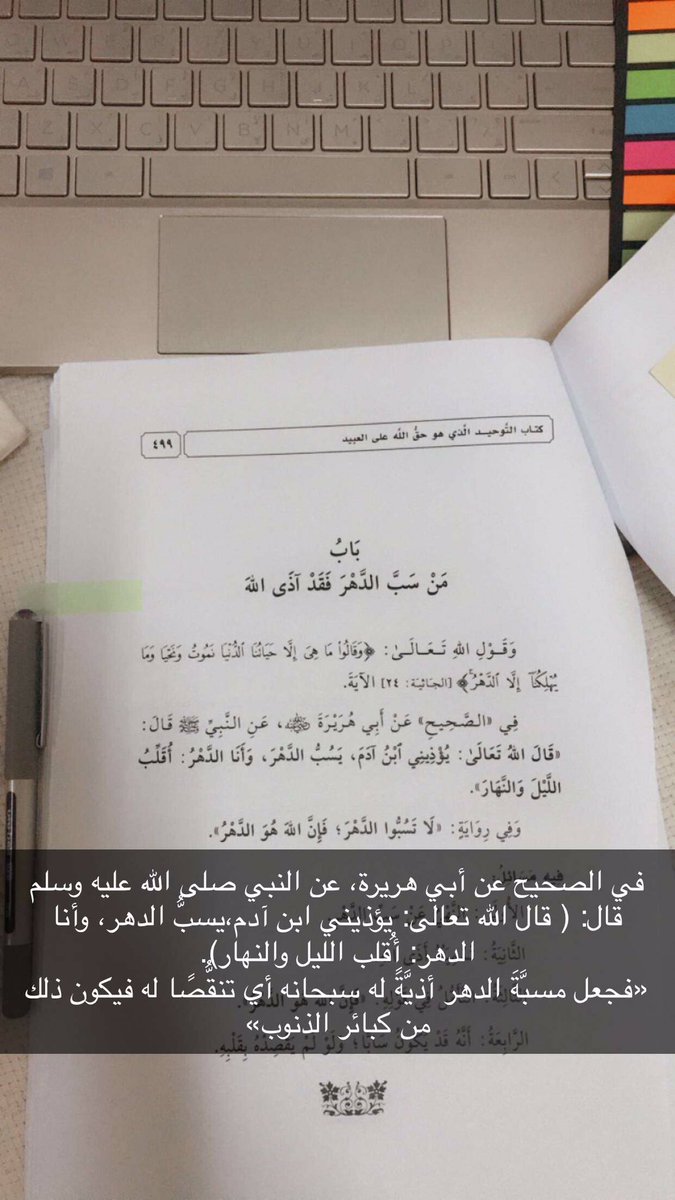 A S D F G H J K L
Z X C V B N M
كتاب التَّوحيـد الَّذي هو حقُّ اللَّه على العبيد
٤٩٩
بَابُ
مَنْ سَبَّ الدَّهْرَ فَقَدْ آذَى اللهَ
وَقَـوْلِ اللهِ تَـعَـالَـىٰ: ﴿وَقَالُوا۟ مَا هِىَ إِلَّا حَيَاتُنَا ٱلدُّنْيَا نَمُوتُ وَنَحْيَا وَمَا
يُهْلِكُنَآ إِلَّا ٱلدَّهْرُ﴾ [الجاثية: ٢٤] الآيَةَ.
فِي «الصَّحِيحِ» عَنْ أَبِي هُرَيْرَةَ ﵁، عَنِ النَّبِيِّ ﷺ قَالَ:
«قَالَ اللهُ تَعَالَىٰ: يُؤْذِينِي ٱبْنُ آدَمَ، يَسُبُّ الدَّهْرَ، وَأَنَا الدَّهْرُ: أُقَلِّبُ
اللَّيْلَ وَالنَّهَارَ».
وَفِي رِوَايَةٍ: «لَا تَسُبُّوا الدَّهْرَ؛ فَإِنَّ اللهَ هُوَ الدَّهْرُ».
فيه مسائل:
في الصحيح عن أبي هريرة، عن النبي صلى الله عليه وسلم
قال: ( قال الله تعالى. يؤذيني ابن آدم،يسبُّ الدهر، وأنا
الدهر: أُقلب الليل والنهار).
«فجعل مسبَّةَ الدهر أذيَّةً له سبحانه أي تنقُّصًا له فيكون ذلك
من كبائر الذنوب»
الرَّابِعَةُ: أَنَّهُ قَدْ يَكُونُ سَابًّا؛ وَلَوْ لَمْ يَقْصِدْهُ بِقَلْبِهِ.